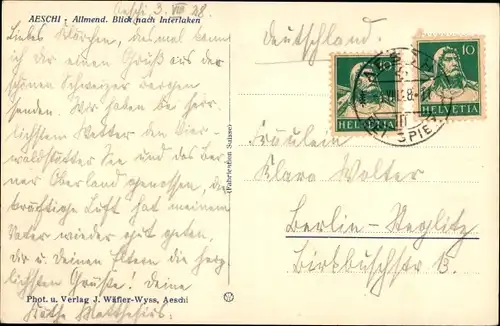 Aeschi 3. VIII 28.
AESCHI - Allmend. Blick nach Interlaken
Liebes Klärchen, diesmal kann
ich dir einen Gruß aus der
schönen Schweizer Bergen
senden. Wir haben bei herr-
lichstem Wetter den Vier-
waldstätter See und das Ber-
ner Oberland genossen, die
kräftige Luft hat meinem
Vater wieder gut getan.
Dir u. Deinen Eltern die herz-
lichsten Grüße. Deine
Käthe Matthesius.
Phot. u. Verlag J. Wäfler-Wyss, Aeschi
(Fabrication Suisse)
Deutschland.
10
HELVETIA
10
HELVETIA
AESCHI
SPIEZ
Fräulein
Klara Wolter
Berlin-Steglitz
Birkbuschstr 13.